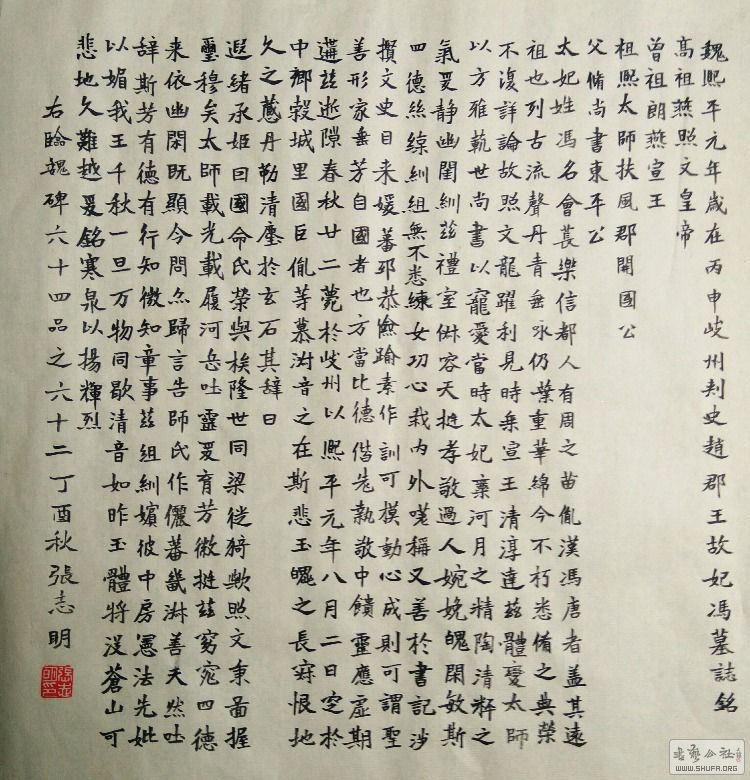 魏熙平元年歲在丙申岐州刺史趙郡王故妃馮墓誌銘
高祖燕照文皇帝
曾祖朗燕宣王
祖熙太師扶風郡開國公
父脩尚書東平公
太妃姓馮名會萇樂信都人有周之苗胤漢馮唐者蓋其遠
祖也列古流聲丹青垂永仍葉重華綿今不朽悉脩之典榮
不復詳論故照文龍躍利見時乘宣王清淳達茲體慶太師
以方雅軌世尚書以寵愛當時太妃稟河月之精陶清粹之
氣爰靜幽閨糾茲禮室淋容天挺孝敬過人婉娩閑敏斯
四德絲綜糾組無不悉練女功心栽內外嗟稱又善於書記涉
攬文史目來媛蕃邳恭儉踰素作訓可模動心成則可謂聖
善形家垂芳自國者也方當比德偕先執敬中饋靈應虛期
遘茲逝隙春秋廿二薨於岐州以熙平元年八月二日窆於
中鄉穀城里國臣胤等慕淋音之在斯悲玉魄之長寐恨地
久之蔫丹勒清塵於玄石其辞曰
遐緒承姬曰國命氏榮與挨隆世同梁徙猗歟照文秉啚握
璽穆矣太師載光載履河岳吐靈爰育芳徽挺茲窈窕四德
来依幽閑既顯今問亦歸言告師氏作儷蕃畿淋善天然吐
辞斯芳有德有行知微知章事茲組糾嬪彼中房憲法先妣
以媚我王千秋一旦万物同歇清音如昨玉體将沒蒼山可
悲地久難越爰銘寒泉以揚輝烈
右臨魏碑六十四品之六十二丁酉秋張志明
張志明印
書藝公社
WWW.SHUFA.ORG